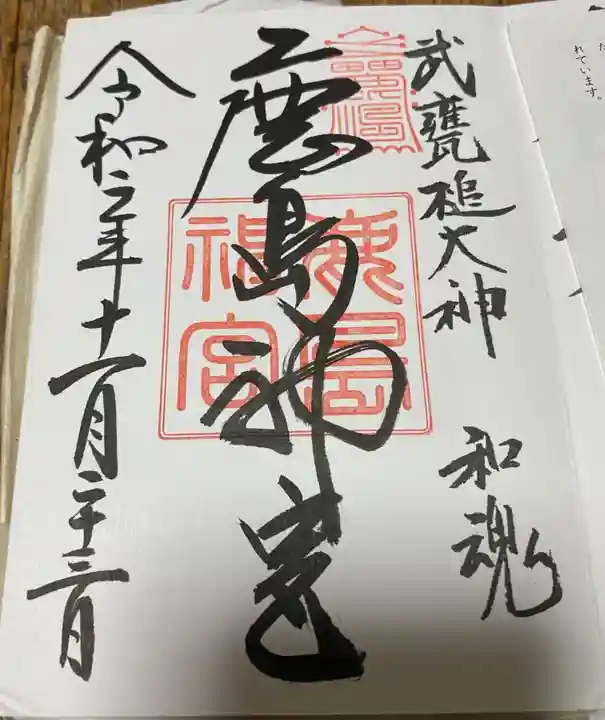 れています。
武甕槌大神 和魂
鹿島神宮
鹿島
神宮
令和二年十一月二十三日